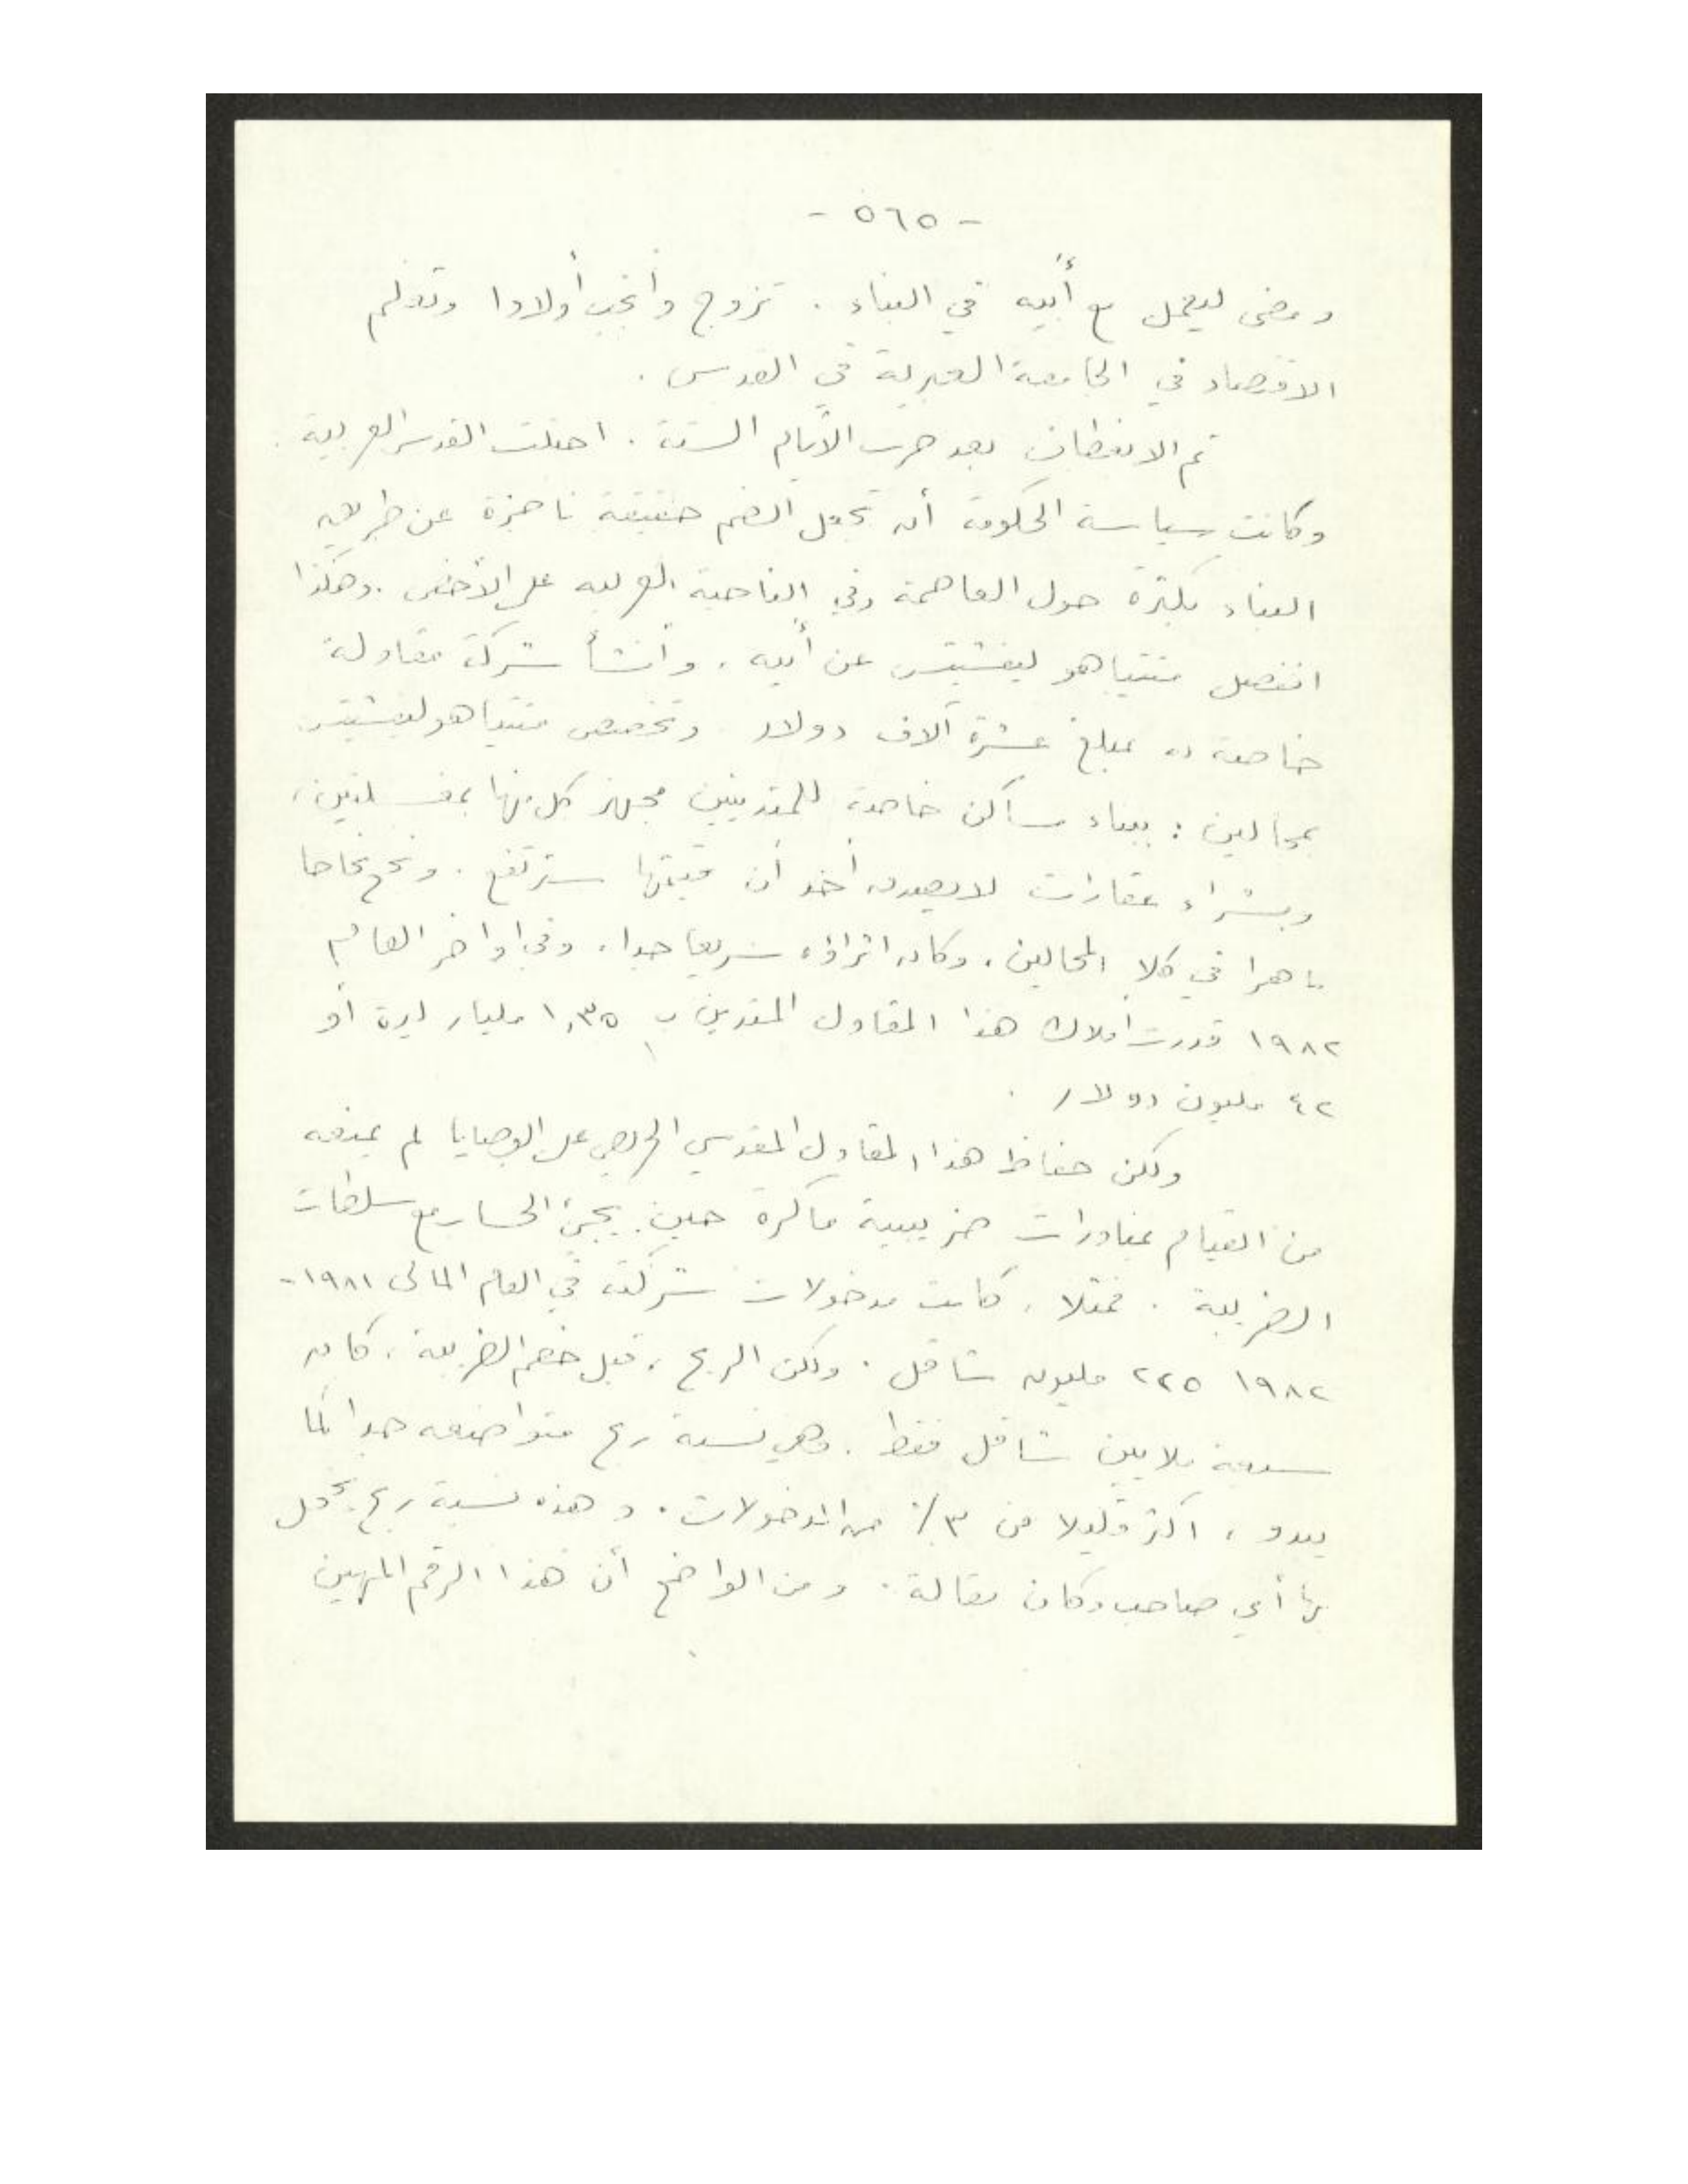 - ٥٦٥ -
ومضى ليعمل مع أبيه في البناء . تزوج وأنجب أولادا وتعلم
الاقتصاد في الجامعة العبرية في القدس .
تم الانعطاف بعد حرب الأيام الستة . احتلت القدس العربية .
وكانت سياسة الحكومة أن تجعل الضم حقيقة ناجزة عن طريق
البناء بكثرة حول العاصمة وفي الناحية العربية على الأخص . وهكذا
انفصل متتياهو ليفشيتس عن أبيه ، وأنشأ شركة مقاولة
خاصة به بمبلغ عشرة آلاف دولار . وتخصص متتياهو ليفشيتس
بمجالين : ببناء مساكن خاصة للمتدينين مجهز كل منها بمغسلتين ،
وبشراء عقارات لا يصدق أحد أن قيمتها سترتفع . ونجح نجاحا
باهرا في كلا المجالين ، وكان اثراؤه سريعا جدا ، وفي اواخر العام
١٩٨٢ قدرت أملاك هذا المقاول المتدين ب ١,٣٥ مليار ليرة أو
٤٢ مليون دولار .
ولكن حفاظ هذا المقاول المقدسي الحريص على الوصايا لم يمنعه
من القيام بمناورات ضريبية ماكرة حين يجيئ الحساب مع سلطات
الضريبة . فمثلا ، كانت مدخولات شركته في العام المالي ١٩٨١-
١٩٨٢ ٢٢٥ مليون شاقل . ولكن الربح ، قبل خصم الضريبة ، كان
سبعة ملايين شاقل فقط . وهي نسبة ربح متواضعه جدا كما
يبدو ، اكثر قليلا من ٣٪ من المدخولات . و هذه نسبة ربح يخجل
بها أي صاحب دكان بقالة . ومن الواضح أن هذا الرقم المهين